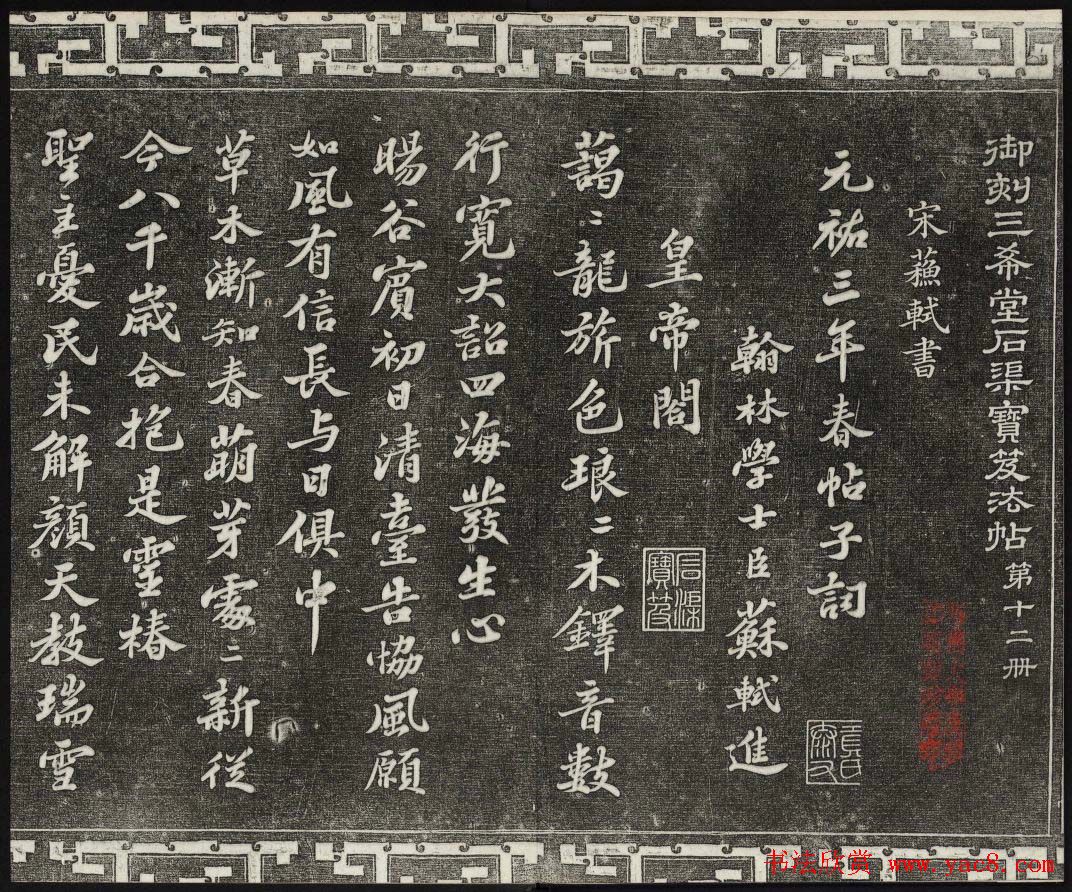 御刻三希堂石渠寶笈法帖第十二冊
宋蘓軾書
元祐三年春帖子詞
翰林學士臣蘇軾進
皇帝閣
藹〻龍旂色琅〻木鐸音數
行寬大詔四海發生心
暘谷賔初日清臺告協風願
如風有信長与日俱中
草木漸知春萌芽處〻新從
今八千歲合抱是靈椿
聖主憂民未解顏天教瑞雪
石渠寶笈
书法欣赏 www.yac8.com